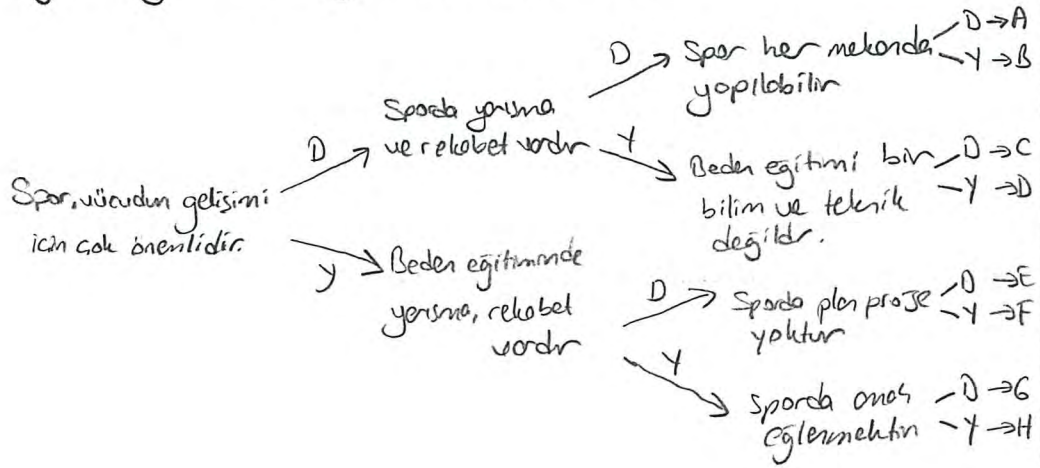 Spor, vücudun gelişimi
için çok önemlidir.
D
Y
Sporda yarışma
ve rekabet vardır
Beden eğitiminde
yarışma, rekabet
vardır
D
Y
D
Y
Spor her mekanda
yapılabilir
D → A
Y → B
Beden eğitimi bir
bilim ve teknik
değildir.
D → C
Y → D
Sporda plan proje
yoktur
D → E
Y → F
Sporda amaç
eğlenmektir
D → G
Y → H